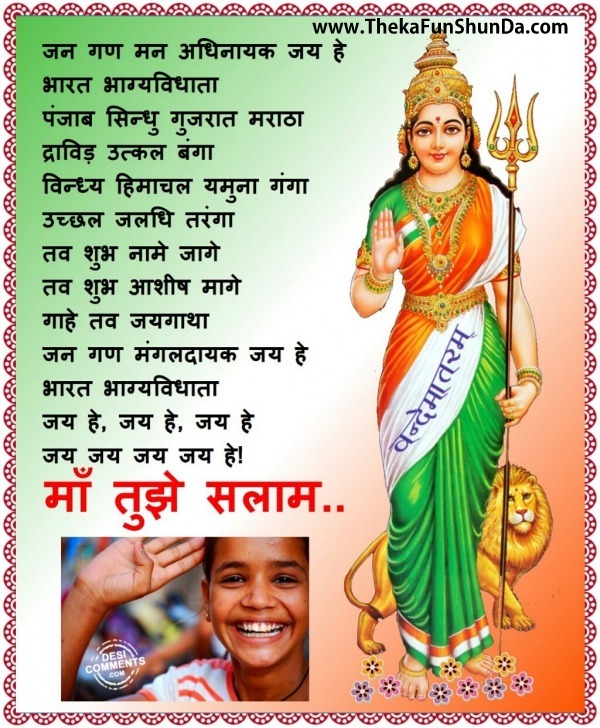 www.ThekaFunShunDa.com
जन गण मन अधिनायक जय हे
भारत भाग्यविधाता
पंजाब सिन्धु गुजरात मराठा
द्राविड़ उत्कल बंगा
विन्ध्य हिमाचल यमुना गंगा
उच्छल जलधि तरंगा
तव शुभ नामे जागे
तव शुभ आशीष मागे
गाहे तव जयगाथा
जन गण मंगलदायक जय हे
भारत भाग्यविधाता
जय हे, जय हे, जय हे
जय जय जय जय हे!
माँ तुझे सलाम..
वन्देमातरम्
DESI
COMMENTS
.COM